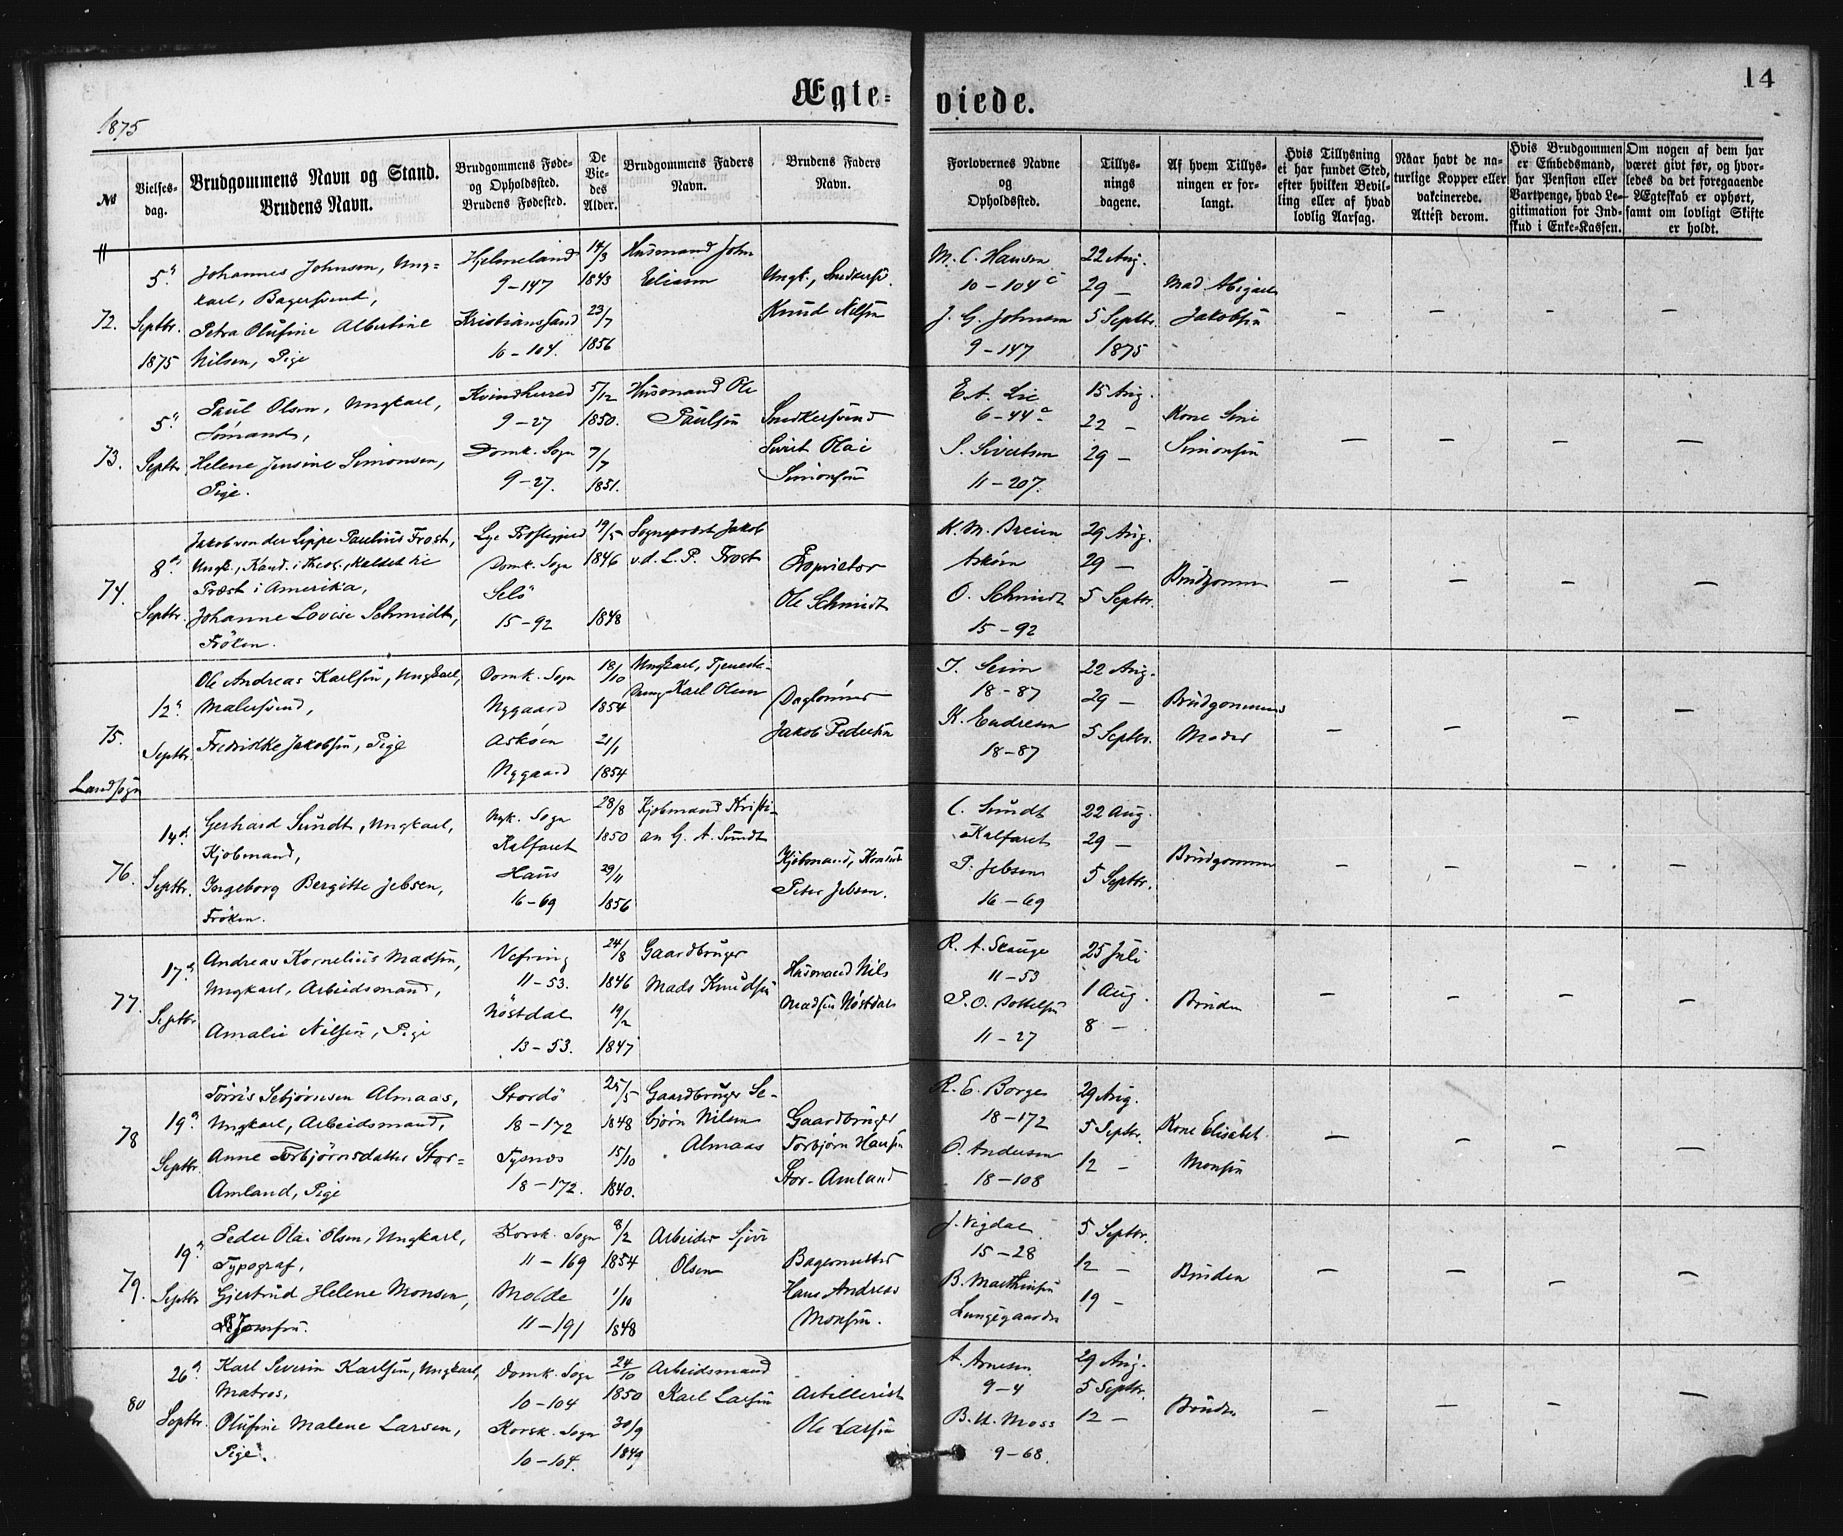 Ægteviede.
14
1875
No
Vielses-
dag.
Brudgommens Navn og Stand.
Brudens Navn.
Brudgommens Føde-
og Opholdssted.
Brudens Fødested.
De
Vie-
des
Alder.
Brudgommens Faders
Navn.
Brudens Faders
Navn.
Forlovernes Navne
og
Opholdssted.
Tillys-
nings
dagene.
Af hvem Tillys-
ningen er for-
langt.
Hvis Tillysning
ei har fundet Sted,
efter hvilken Bevil-
ling eller af hvad
lovlig Aarsag.
Naar havt de na-
turlige Kopper eller
vakcinerede.
Attest derom.
Hvis Brudgommen
er Embedsmand,
har Pension eller
Vartpenge, hvad Le-
gitimation for Ind-
skud i Enke-Kassen.
Om nogen af dem har
været givt før, og hvor-
ledes da det foregaaende
Ægteskab er ophørt,
samt om lovligt Skifte
er holdt.
72.
5
Septbr.
1875
Johannes Johnsen, Ung-
karl, Bagersvend,
Petra Olufine Albertine
Nilsen, Pige
Hjelmeland
9-147
Kristianssand
10-104.
14/3
1843
23/7
1856
Husmand John
Ungk., Snedkersv.
Knud Nilsen
M. C. Hansen
10-104 c
J. G. Johnsen
9-147
22 Aug.
29 —
5 Septbr.
1875
Mad. Abigael
Jakobsen
— — — —
73.
5
Septbr.
Paul Olsen, Ungkarl,
Sømand,
Helene Jensine Simonsen,
Pige.
Kvindherred
9-27
Domk. Sogn
9-27.
5/12
1850.
7/7
1851.
Husmand Ole
Paulsen
Snedkersvend
Sivert Olai
Simonsen
E. A. Lie
6-44 a
S. Sivertsen
11-207.
15 Aug.
22 —
29 —
Kone Sine
Simonsen
— — — —
74.
8
Septbr.
Jakob von der Lippe Paulinus Frost,
Ungk., Kand. i theol., kaldet til
Præst i Amerika,
Johanne Lovise Schmidt,
Frøken.
Domk. Sogn
15-92
19/5
1846
1848
Sognepræst Jakob
v. d. L. P. Frost
Proprietær
Ole Schmidt
K. M. Breien
Askøen
O. Schmidt
15-92
29 Aug.
29 —
5 Septbr.
Brudgommen
— — — —
75.
Landsogn
12
Septbr.
Ole Andreas Karlsen, Ungkarl,
Malersvend,
Fredrikke Jakobsen, Pige
Domk. Sogn
Nygaard
Askøen
Nygaard
18/10
1854
21/1
1854
Ungkarl, Tjeneste-
dreng Karl Olsen
Daglønner
Jakob Pedersen
T. Seim
18-87
K. Endresen
18-87
22 Aug.
29 —
5 Septbr.
Brudgommens
Moder
— — — —
76.
14
Septbr.
Gerhard Sundt, Ungkarl,
Kjøbmand,
Ingeborg Bergitte Jebsen,
Frøken.
Nyk. Sogn
Kalfaret
Haus
16-69
28/8
1850
29/11
1856
Kjøbmand Kristi-
an G. A. Sundt
Kjøbmand, Konsul
Peter Jebsen.
C. Sundt
Kalfaret
P. Jebsen
16-69
22 Aug.
29 —
5 Septbr.
Brudgommen
— — — —
77.
17
Septbr
Andreas Kornelius Madsen,
Ungkarl, Arbeidsmand,
Amalie Nilsen, Pige
Vefring
11-53.
Nøstdal
13-53.
24/8
1846
19/2
1847
Gaardbruger
Mads Knudsen
Husmand Nils
Madsen Nøstdal
R. A. Skauge
11-53
11-27
25 Juli
1 Aug.
8 —
Bruden
— — — —
78
19
Septbr.
Tørris Sebjørnsen Almaas,
Ungkarl, Arbeidsmand,
Anne Torbjørnsdatter Stor-
Amland, Pige
Stordø
18-172
Tysnes
18-172.
25/5
1848
15/10
1840.
Gaardbruger Se-
bjørn Nilsen
Almaas
Gaardbruger
Torbjørn Hansen
Stor-Amland
R. E. Borge
18-172
O. Andersen
18-108
29 Aug.
5 Septbr.
12 —
Kone Elisabet
Monsen
— — — —
79.
19
Septbr
Peder Olai Olsen, Ungkarl,
Typograf,
Gjertrud Helene Monsen,
Korsk. Sogn
11-169
Molde
11-191
8/2
1854
1/10
1848
Arbeider Sjur
Olsen
Bagermester
Hans Andreas
Monsen.
J. Vigdal
15-28
B. Marthinsen
Lungegaarden
5 Septbr.
12 —
19 —
Bruden
— — — —
80
26
Septbr.
Karl Severin Karlsen, Ungkarl,
Matros,
Olufine Malene Larsen,
Pige.
Domk. Sogn
10-104
Korsk. Sogn
10-104.
24/10
1850
30/9
1849
Arbeidsmand
Karl Larsen
Artillerist
Ole Larsen
A. Arnesen
9-4
B. U. Moss
9-68.
29 Aug.
5 Septbr.
12 —
Bruden
— — — —